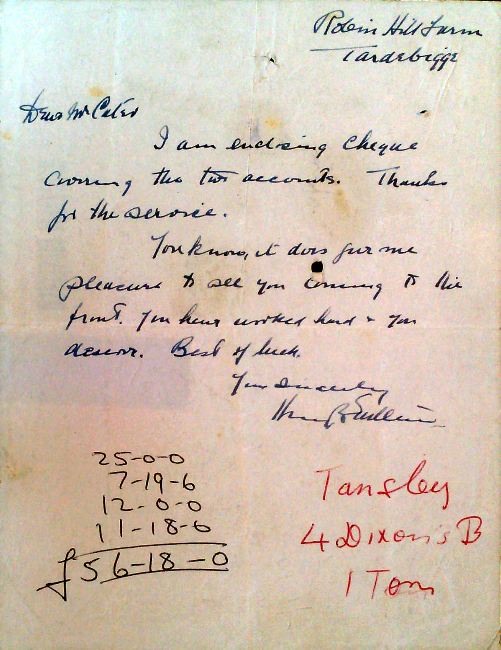 Robin Hill Farm
Tardebigge
Dear Mr Cater
I am enclosing cheque
covering the two accounts. Thanks
for the service.
You know, it does give me
pleasure to see you coming to the
front. You have worked hard & you
deserve. Best of luck.
Your sincerely
25-0-0
7-19-6
12-0-0
11-18-6
£56-18-0
Tansley
4 Dixon's B
1 Ton